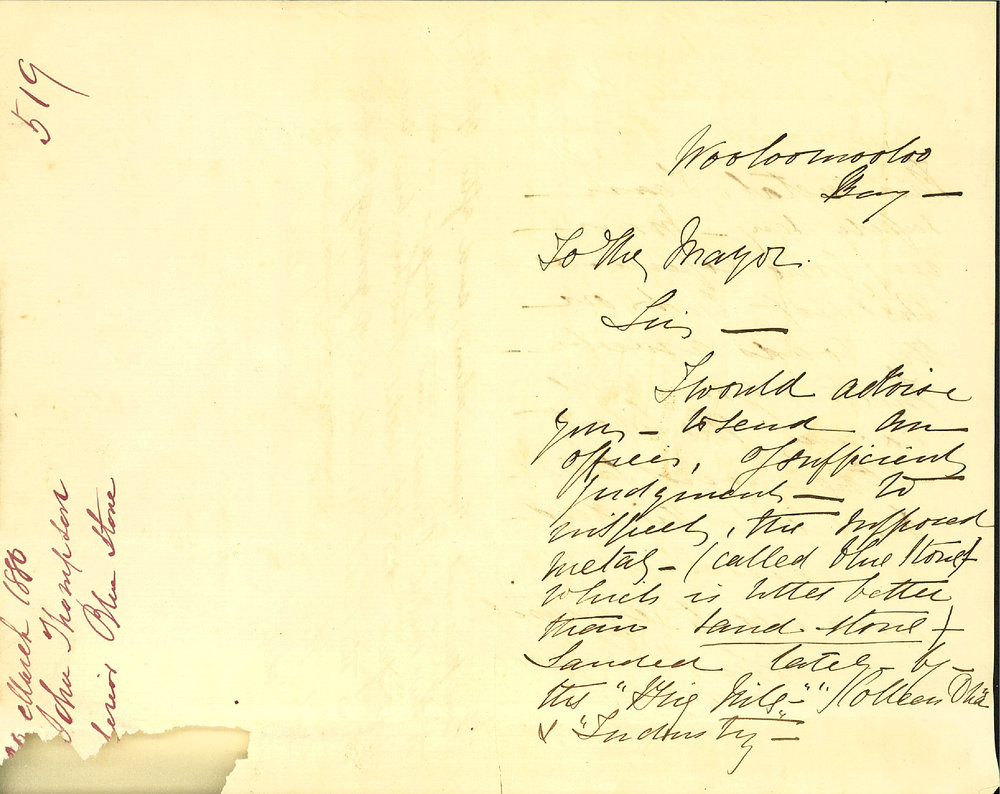 519
March 1880
John Thompson
Blue Stone
Wooloomooloo
Bay —
To the Mayor.
Sir —
I would advise
you — to send an
officer, of sufficient
judgment — to
inspect, the supposed
metal — (called blue stone)
which is little better
than sand stone —
Landed lately — by —
the "
& "Industry —